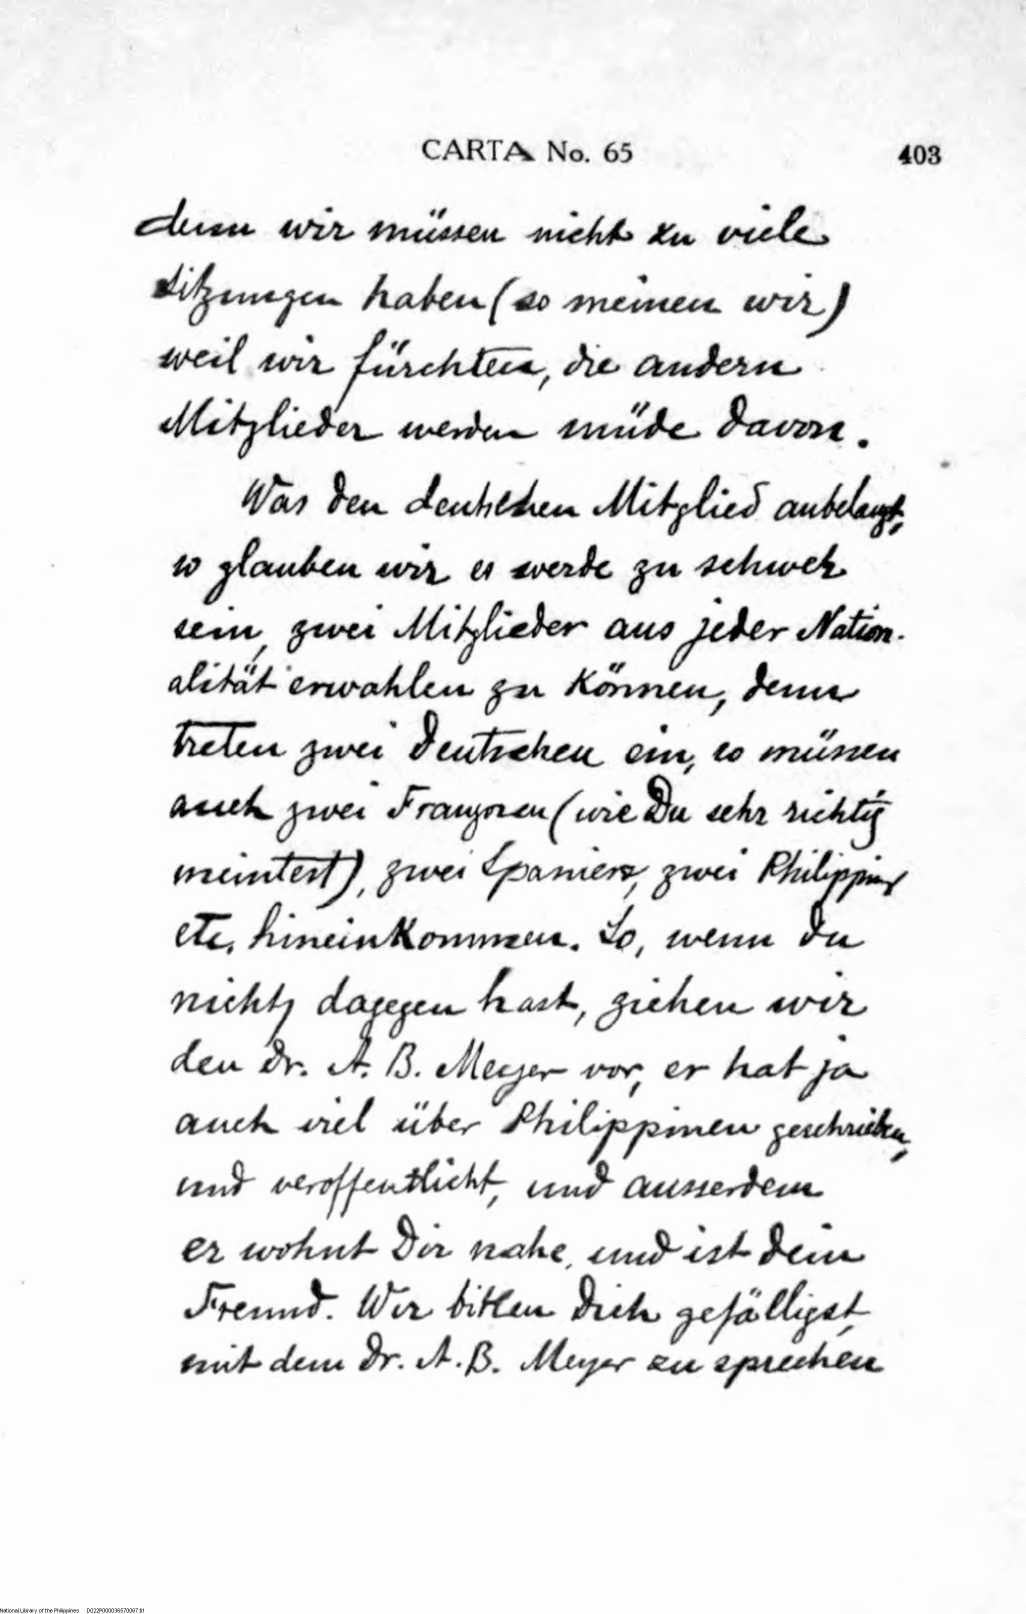 CARTA No. 65
403
denn wir müssen nicht zu viele
Sitzungen haben (so meinen wir)
weil wir fürchten, die andern
Mitglieder werden müde davon.
Was den deutschen Mitglied anbelangt,
so glauben wir es werde zu schwer
sein, zwei Mitglieder aus jeder Nation-
alität erwahlen zu können, denn
treten zwei Deutschen ein, so müssen
auch zwei Franzosen (wie Du sehr richtig
meintest), zwei Spaniers, zwei Philippiner
etc. hineinkommen. So, wenn du
nichts dagegen hast, ziehen wir
den Dr. A. B. Meyer vor, er hat ja
auch viel über Philippinen geschrieben,
und veroffentlicht, und ausserdem
er wohnt Dir nahe, und ist dein
Freund. Wir bitten Dich gefälligst,
mit dem Dr. A. B. Meyer zu sprechen
National Library of the Philippines